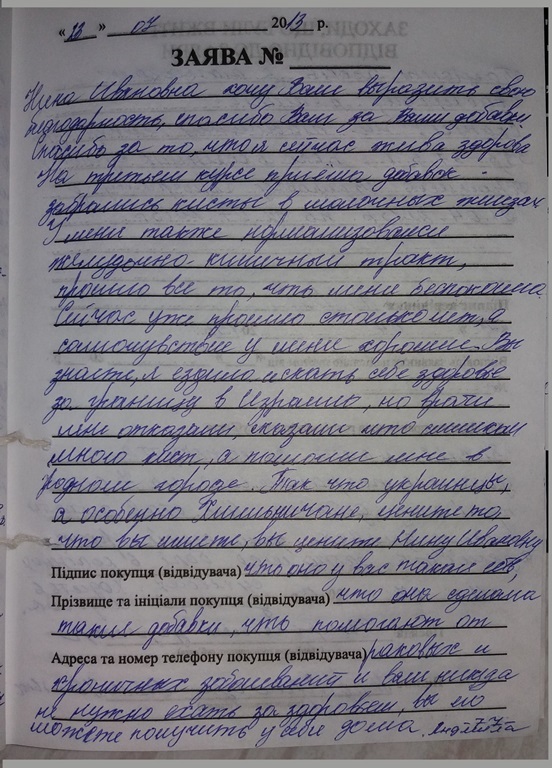 "12" 07 2013 р.
ЗАЯВА №
Нина Ивановна хочу Вам выразить свою
благодарность, спасибо Вам за Ваши добавки
Спасибо за то, что я сейчас жива здорова
На третьем курсе приёма добавок -
забрались кисты в молочных железах
У меня также нормализовался
желудочно кишечный тракт,
прошло все то, что меня беспокоило.
Сейчас уже прошло столько лет, а
самочувствие у меня хорошее. Вы
знаете, я ездила искать себе здоровье
за границу в Израиль, но врачи
мне отказали, сказали что слишком
много кист, а помогли мне в
родном городе. Так что украинцы,
а особенно Хмильничане, цените то
что вы имеете, вы цените Нину Ивановну
Підпис покупця (відвідувача) что она у вас такая есть,
Прізвище та ініціали покупця (відвідувача) что она сделала
такие добавки, что помогают от
Адреса та номер телефону покупця (відвідувача) раковых и
хроничных заболеваний и вам никуда
не нужно ехать за здоровьем, вы его
можете получить у себя дома.